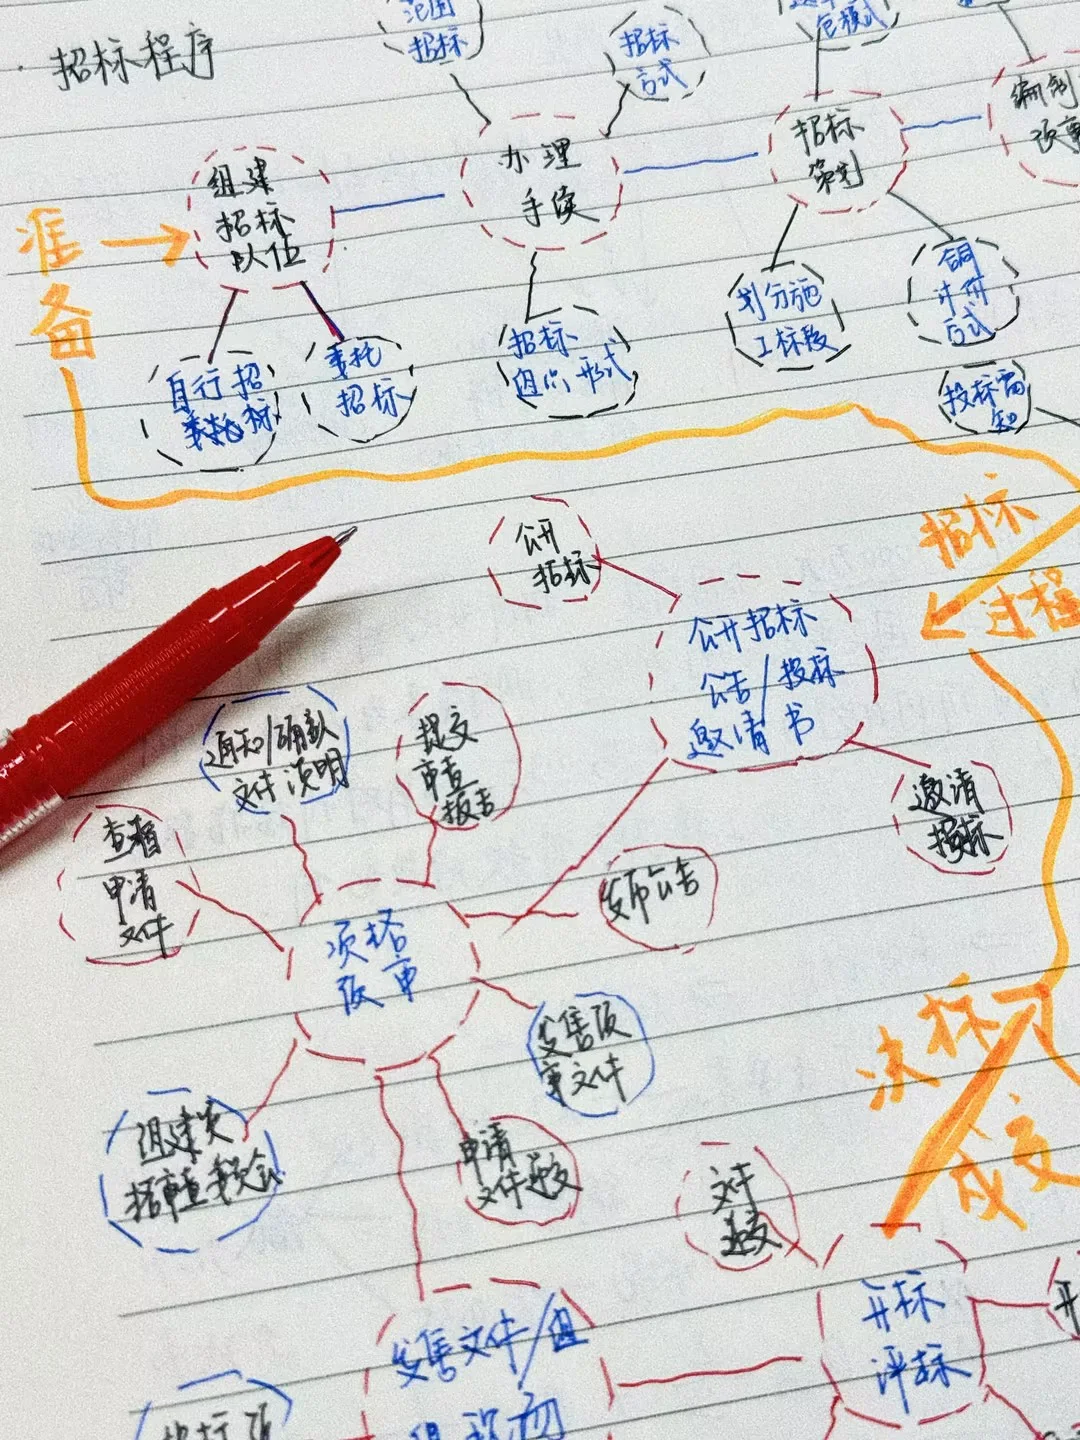 招标程序
范围
招标
招标
方式
包模式
编制
组建
招标
队伍
办理
手续
招标
策划
准
备
自行招
标
委托
招标
招标
组织形式
划分施
工标段
合同
计价
方式
投标需
知
招标
过程
公开
招标
公开招标
公告/投标
邀请书
邀请
投标
通知/确认
文件须明
提交
审查
报告
查看
申请
文件
发布公告
发售
文件
组建
审查委员会
申请
文件递交
文件
递交
决标
成交
开标
评标
开
发售文件/组